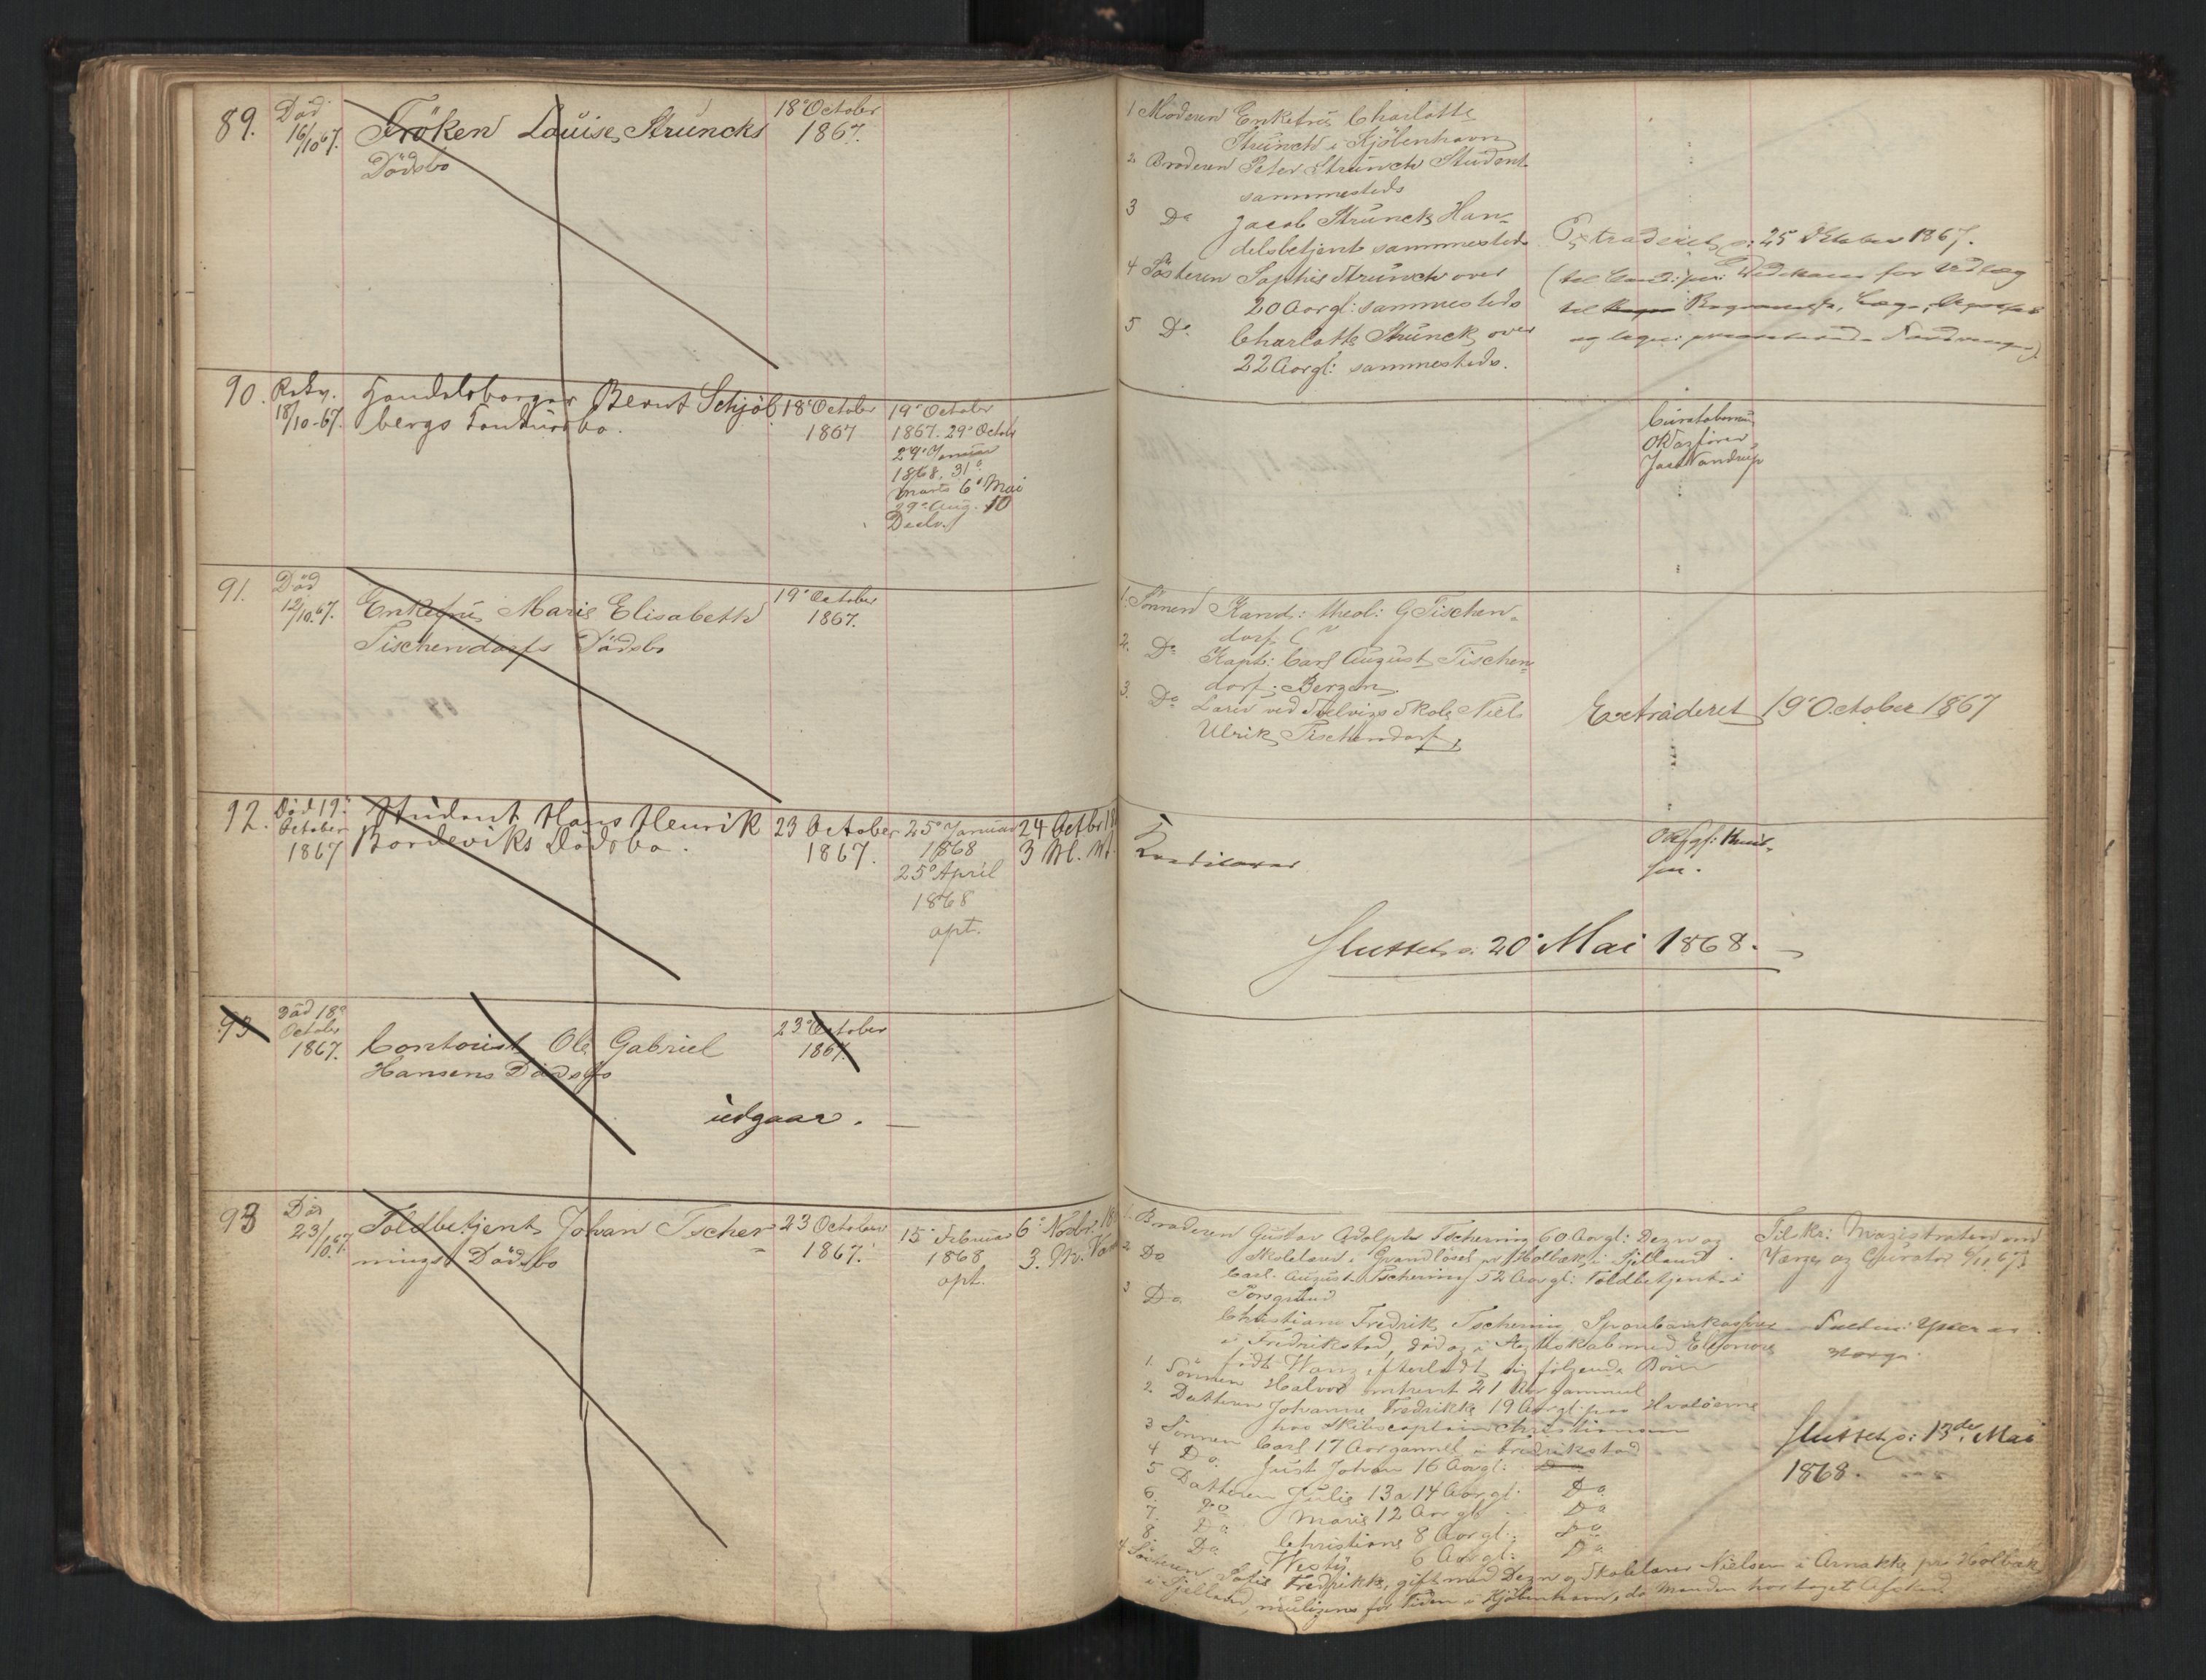 89.
Död
16/10 67.
Fröken Louise Struncks
Dödsbo
18de October
1867.
1 Moderen Enkefru Charlotte
Strunck i Kjöbenhavn
2 Broderen Peter Strunck Student
sammesteds
3 Do Jacob Strunck Han-
delsbetjent sammesteds
4 Søsteren Sophie Strunck over
20 Aar gl: sammesteds
5 Do Charlotte Strunck over
22 Aar gl: sammesteds.
Extraderet d: 25 October 1867.
90.
Rekv.
18/10-67.
Handelsborger Bernt Schjöl-
bergs
18de October
1867
19de October
1867. 29de Octobr
29de Januar
1868. 31de
Marts 6te Mai
29de Aug. 10
Decbr.
91.
Död
12/10 67.
Enkefru Marie Elisabeth
Tischendorfs Dödsbo
19de October
1867.
1. Sønnen Kand: theol: G Tischen-
dorf
2. Do Kapt: Carl August Tischen-
dorf, Bergen
3. Do Lærer ved Skole Niels
Ulrik Tischendorf,
Extraderet 19de October 1867
92.
Död 19de
October
1867
Student Hans Henrik
Bordeviks Dödsbo.
23 October
1867.
25de Januar
1868
25de April
1868
opt.
24 Octbr 18
3
Kreditorer
Sluttet d. 20de Mai 1868.
93
Död 18de
October
1867.
Contorist Ole Gabriel
Hansens Dödsbo
23de October
1867.
udgaar.
93
Död
23/10 67.
Toldbetjent Johan Tscher-
nings Dödsbo
23 October
1867.
15de Februar
1868
opt.
6te Novbr. 18
3.
1. Broderen Gustav Adolph Tscherning 60 Aar gl: Degn og
Skolelærer i Grandløse pr Holbæk i Sjælland
2 Do Carl August Tscherning 52 Aar gl: Toldbetjent i
Porsgrund
3 Do Christian Fredrik Tscherning Sparebankkasserer
i Fredrikstad, død og i Ægteskab med Elenore
født Wang efterladt sig følgende Børn
1. Sønnen Halvor omtrent 21 Aar gammel
2. Datteren Johanne Fredrikke 19 Aar gl: paa Hvaløerne
hos Skibscaptein Christiansen
3 Sønnen Carl 17 Aar gammel i Fredrikstad
4 Do. Just Johan 16 Aar gl: Do
5 Datteren Julie 13 a 14 Aar gl: Do
6. Do Marie 12 Aar gl: Do
7. Do. Christiane 8 Aar gl: Do
8. Do. 6 Aar gl: Do
4 Søsteren Fredrikke, gift med Degn og Skolelærer Nielsen i Arnakke pr Holbæk
i Sjælland, muligens for Tiden i Kjöbenhavn, da Manden har taget Afsked.
Tilskr: Magistraten om
Værge og Curator 6/11 67.
Sluttet d: 13de Mai
1868.